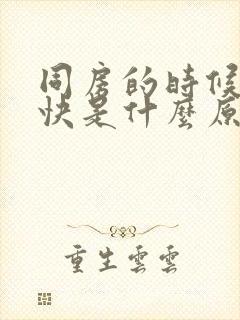 同房的時候
快是什麼原
重生雲雲